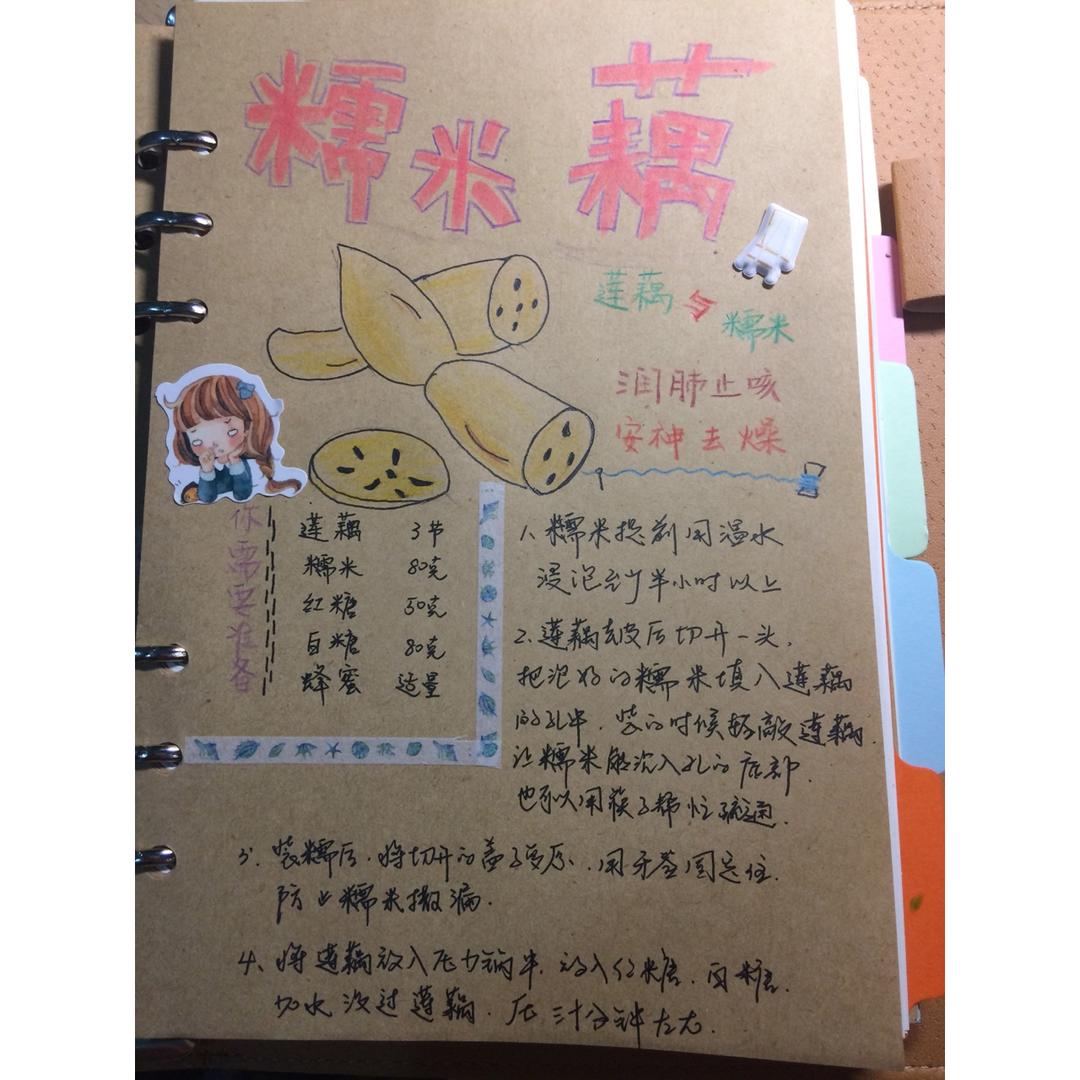 糯米藕
莲藕与糯米
润肺止咳
安神去燥
你需要准备
莲藕 3节
糯米 80克
红糖 50克
白糖 80克
蜂蜜 适量
1、糯米提前用温水
浸泡至少半小时以上
2、莲藕去皮后切开一头,
把泡好的糯米填入莲藕
的孔中.装的时候轻敲莲藕.
让糯米能沉入孔的底部.
也可以用筷子帮忙疏通.
3、装糯后.将切开的盖子复原、用牙签固定住.
防止糯米撒漏.
4、将莲藕放入压力锅中.放入红糖.白糖.
加水没过莲藕.压三十分钟左右.